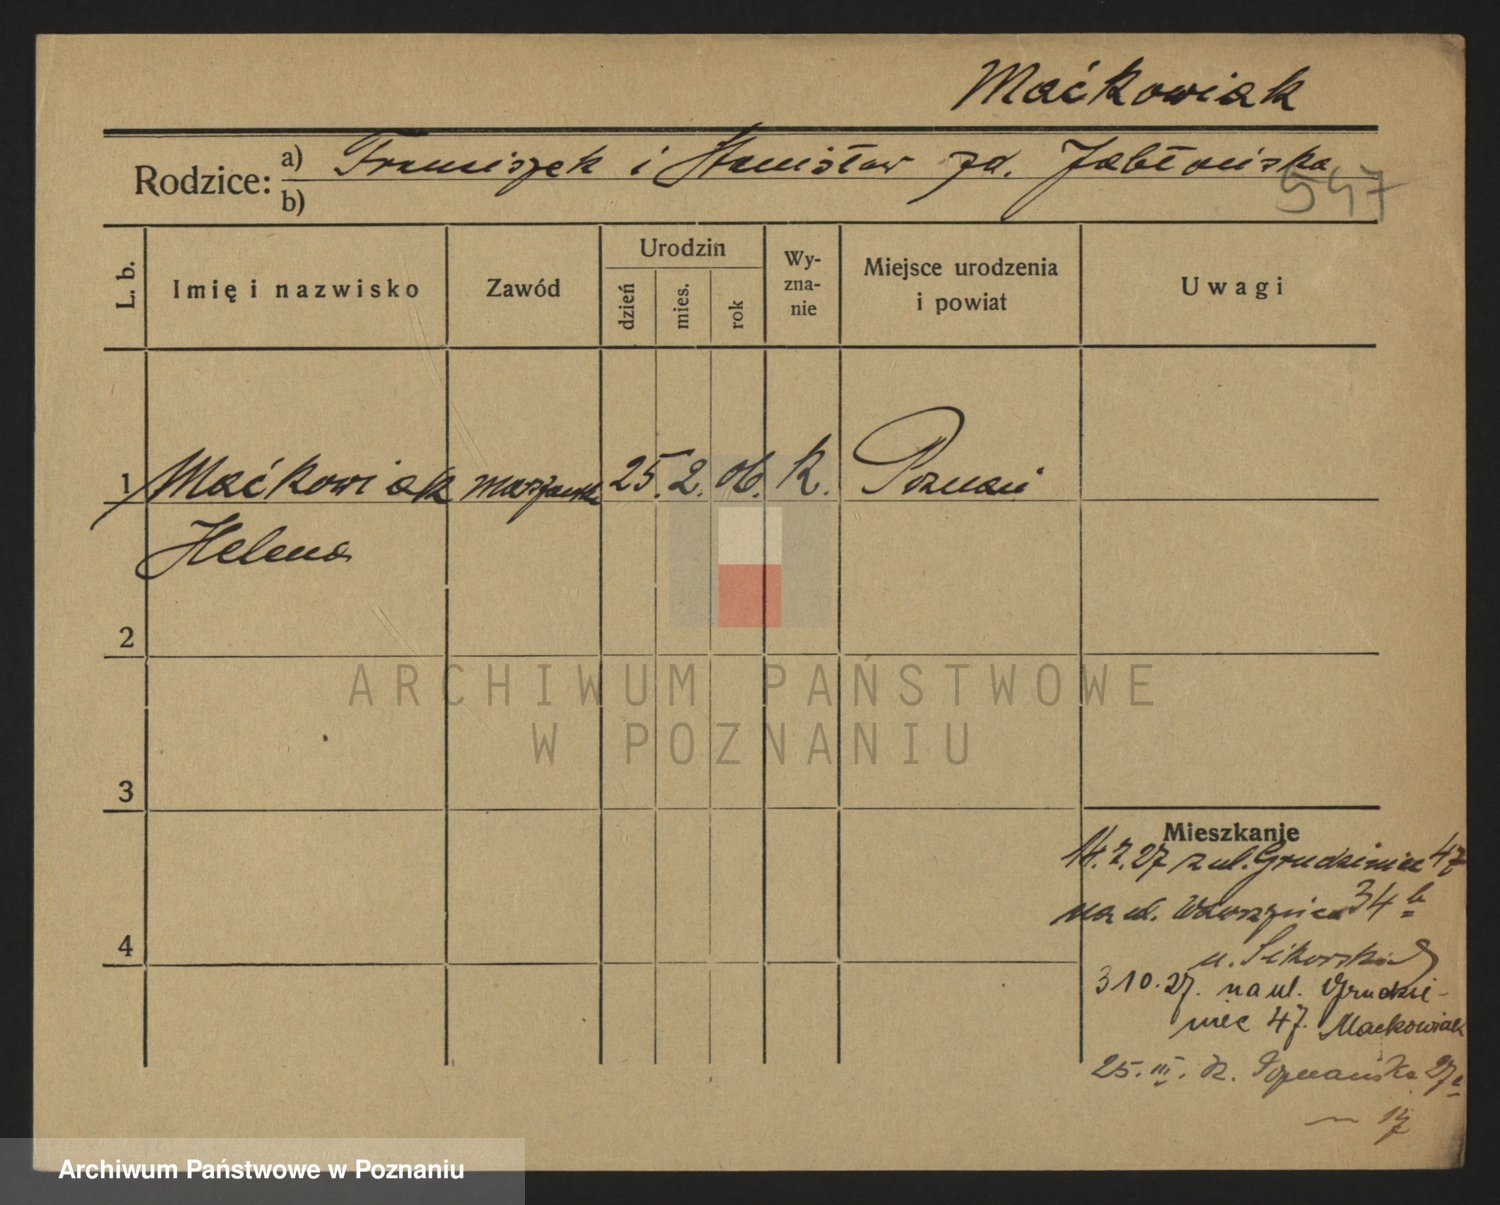 Maćkowiak
Rodzice: a) Franciszek i Stanisław zd. Jabłońska
b)
547
L. b.
Imię i nazwisko
Zawód
Urodzin
dzień
mies.
rok
Wy-
zna-
nie
Miejsce urodzenia
i powiat
Uwagi
1 Maćkowiak 25. 2. 06. K. Poznań
Helena
2
3
4
Mieszkanie
14.7.27 z ul. Grudzieniec 47
na ul. Wawrzyńca 34 b
u. Sikorski
3 10.27. na ul. Grudzie-
niec 47. Mackowiak
25. III. Poznańska 27
ARCHIWUM PAŃSTWOWE
W POZNANIU
Archiwum Państwowe w Poznaniu